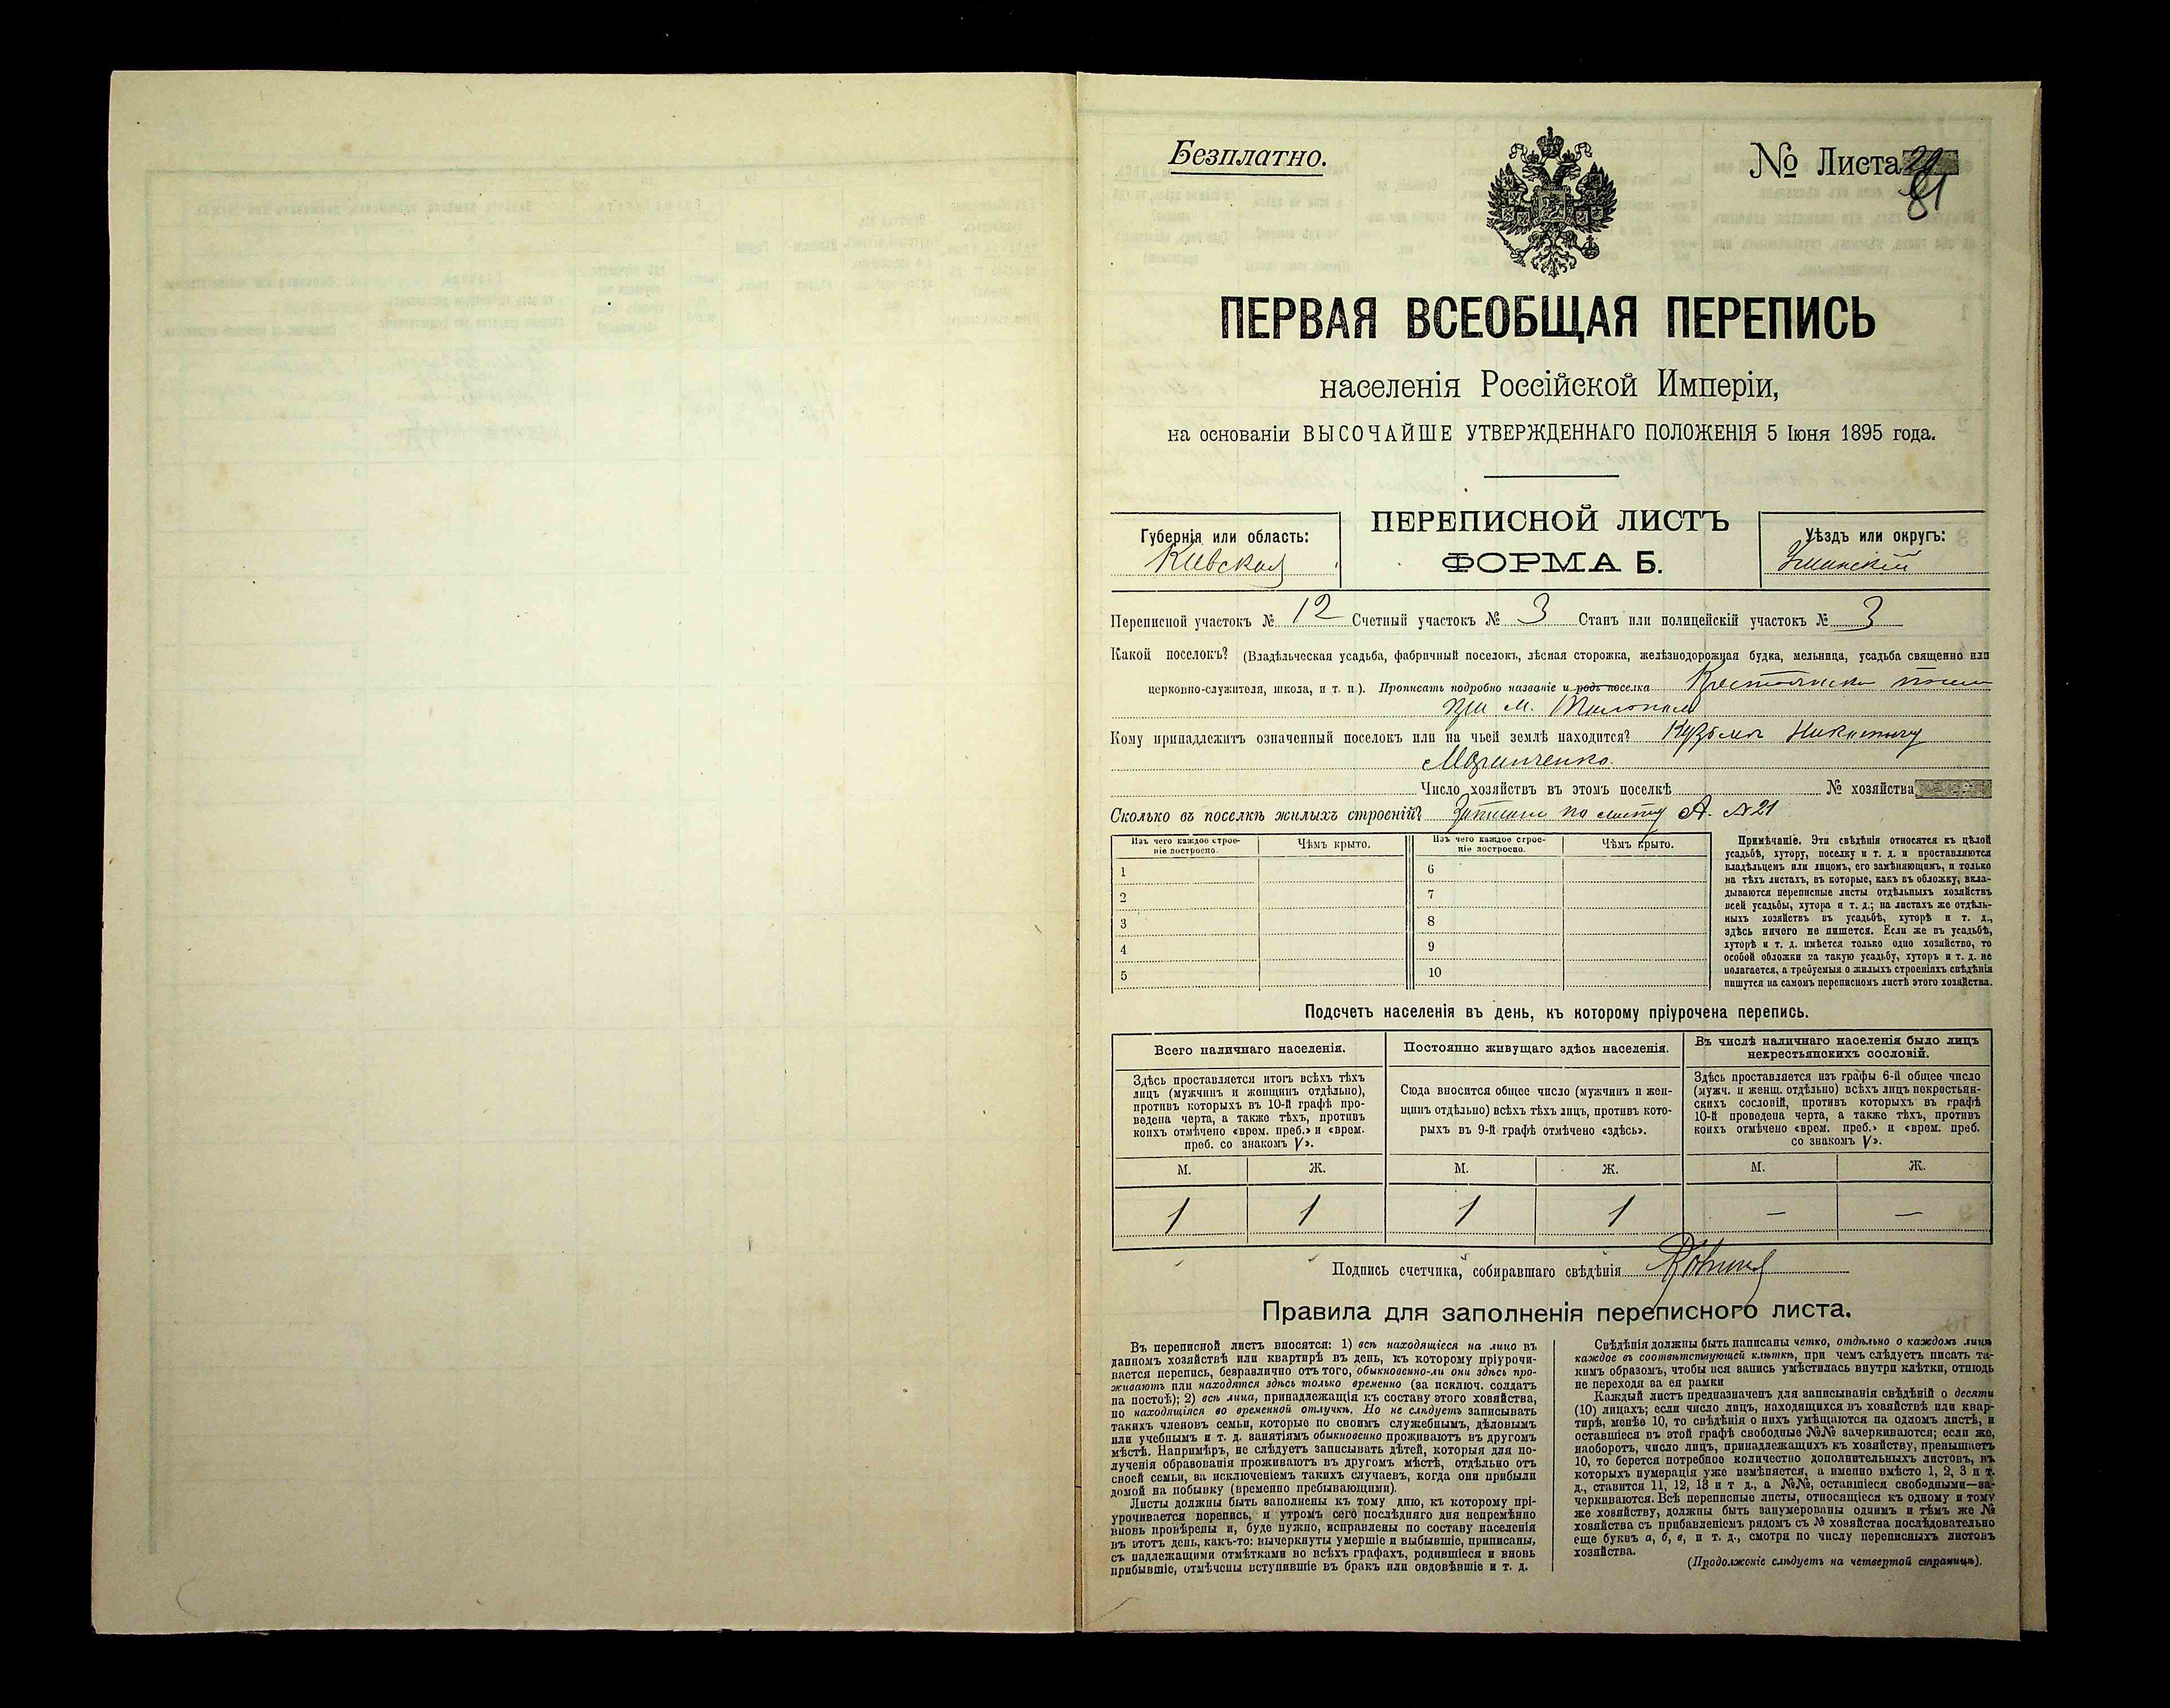 Безплатно.
№ Листа 20
81
ПЕРВАЯ ВСЕОБЩАЯ ПЕРЕПИСЬ
населенія Россійской Имперіи,
на основаніи ВЫСОЧАЙШЕ УТВЕРЖДЕННАГО ПОЛОЖЕНІЯ 5 Іюня 1895 года.
Губернія или область:
Кіевская
ПЕРЕПИСНОЙ ЛИСТЪ
ФОРМА Б.
Уѣздъ или округъ:
Уманскій
Переписной участокъ № 12 Счетный участокъ № 3 Станъ или полицейскій участокъ № 3
Какой поселокъ? (Владѣльческая усадьба, фабричный поселокъ, лѣсная сторожка, желѣзнодорожная будка, мельница, усадьба священно или
церковно-служителя, школа, и т. п.). Прописать подробно названіе и родъ поселка
при м.
Кому принадлежитъ означенный поселокъ или на чьей землѣ находится? Кузьмѣ Никитичу
Число хозяйствъ въ этомъ поселкѣ № хозяйства
Сколько въ поселкѣ жилыхъ строеній? по листу А. №21
Изъ чего каждое строе-
ніе построено.
Чѣмъ крыто.
Изъ чего каждое строе-
ніе построено.
Чѣмъ крыто.
1 6
2 7
3 8
4 9
5 10
Примѣчаніе. Эти свѣдѣнія относятся къ цѣлой
усадьбѣ, хутору, поселку и т. д. и проставляются
владѣльцемъ или лицомъ, его замѣняющимъ, и только
на тѣхъ листахъ, въ которые, какъ въ обложку, вкла-
дываются переписные листы отдѣльныхъ хозяйствъ
всей усадьбы, хутора и т. д.; на листахъ же отдѣль-
ныхъ хозяйствъ въ усадьбѣ, хуторѣ и т. д.,
здѣсь ничего не пишется. Если же въ усадьбѣ,
хуторѣ и т. д. имѣется только одно хозяйство, то
особой обложки на такую усадьбу, хуторъ и т. д. не
полагается, а требуемыя о жилыхъ строеніяхъ свѣдѣнія
пишутся на самомъ переписномъ листѣ этого хозяйства.
Подсчетъ населенія въ день, къ которому пріурочена перепись.
Всего наличнаго населенія.
Здѣсь проставляется итогъ всѣхъ тѣхъ
лицъ (мужчинъ и женщинъ отдѣльно),
противъ которыхъ въ 10-й графѣ про-
ведена черта, а также тѣхъ, противъ
коихъ отмѣчено «врем. преб.» и «врем.
преб. со знакомъ V».
Постоянно живущаго здѣсь населенія.
Сюда вносится общее число (мужчинъ и жен-
щинъ отдѣльно) всѣхъ тѣхъ лицъ, противъ кото-
рыхъ въ 9-й графѣ отмѣчено «здѣсь».
Въ числѣ наличнаго населенія было лицъ
некрестьянскихъ сословій.
Здѣсь проставляется изъ графы 6-й общее число
(мужч. и женщ. отдѣльно) всѣхъ лицъ некрестьян-
скихъ сословій, противъ которыхъ въ графѣ
10-й проведена черта, а также тѣхъ, противъ
коихъ отмѣчено «врем. преб.» и «врем. преб.
со знакомъ V».
М. Ж. М. Ж. М. Ж.
1 1 1 1 — —
Подпись счетчика, собиравшаго свѣдѣнія
Правила для заполненія переписного листа.
Въ переписной листъ вносятся: 1) всѣ находящіеся на лицо въ
данномъ хозяйствѣ или квартирѣ въ день, къ которому пріурочи-
вается перепись, безразлично отъ того, обыкновенно-ли они здѣсь про-
живаютъ или находятся здѣсь только временно (за исключ. солдатъ
на постоѣ); 2) всѣ лица, принадлежащія къ составу этого хозяйства,
но находящіяся во временной отлучкѣ. Но не слѣдуетъ записывать
такихъ членовъ семьи, которые по своимъ служебнымъ, дѣловымъ
или учебнымъ и т. д. занятіямъ обыкновенно проживаютъ въ другомъ
мѣстѣ. Напримѣръ, не слѣдуетъ записывать дѣтей, которыя для по-
лученія образованія проживаютъ въ другомъ мѣстѣ, отдѣльно отъ
своей семьи, за исключеніемъ такихъ случаевъ, когда они прибыли
домой на побывку (временно пребывающими).
Листы должны быть заполнены къ тому дню, къ которому прі-
урочивается перепись, и утромъ сего послѣдняго дня непремѣнно
вновь провѣрены и, буде нужно, исправлены по составу населенія
въ этотъ день, какъ-то: вычеркнуты умершіе и выбывшіе, приписаны,
съ надлежащими отмѣтками во всѣхъ графахъ, родившіеся и вновь
прибывшіе, отмѣчены вступившіе въ бракъ или овдовѣвшіе и т. д.
Свѣдѣнія должны быть написаны четко, отдѣльно о каждомъ лицѣ
каждое въ соотвѣтствующей клѣткѣ, при чемъ слѣдуетъ писать та-
кимъ образомъ, чтобы вся запись умѣстилась внутри клѣтки, отнюдь
не переходя за ея рамки
Каждый листъ предназначенъ для записыванія свѣдѣній о десяти
(10) лицахъ; если число лицъ, находящихся въ хозяйствѣ или квар-
тирѣ, менѣе 10, то свѣдѣнія о нихъ умѣщаются на одномъ листѣ, и
оставшіеся въ этой графѣ свободные №№ зачеркиваются; если же,
наоборотъ, число лицъ, принадлежащихъ къ хозяйству, превышаетъ
10, то берется потребное количество дополнительныхъ листовъ, въ
которыхъ нумерація уже измѣняется, а именно вмѣсто 1, 2, 3 и т.
д., ставится 11, 12, 13 и т д., а №№, оставшіеся свободными—за-
черкиваются. Всѣ переписные листы, относящіеся къ одному и тому
же хозяйству, должны быть занумерованы однимъ и тѣмъ же №
хозяйства съ прибавленіемъ рядомъ съ № хозяйства послѣдовательно
еще буквъ а, б, в, и т. д., смотря по числу переписныхъ листовъ
хозяйства.
(Продолженіе слѣдуетъ на четвертой страницѣ).